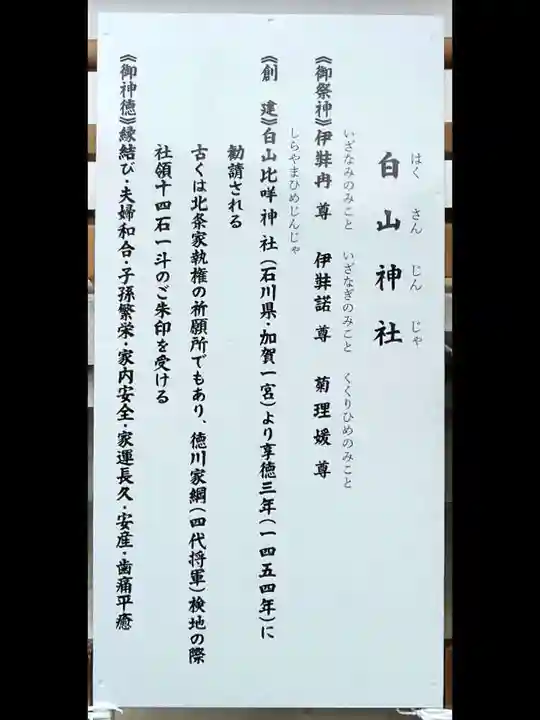 はくさんじんじゃ
白山神社
いざなみのみこと いざなぎのみこと くくりひめのみこと
《御祭神》伊弉冉尊 伊弉諾尊 菊理媛尊
しらやまひめじんじゃ
《創建》白山比咩神社(石川県・加賀一宮)より享徳三年(一四五四年)に
勧請される
古くは北条家執権の祈願所でもあり、徳川家綱(四代将軍)検地の際
社領十四石一斗のご朱印を受ける
《御神徳》縁結び・夫婦和合・子孫繁栄・家内安全・家運長久・安産・歯痛平癒